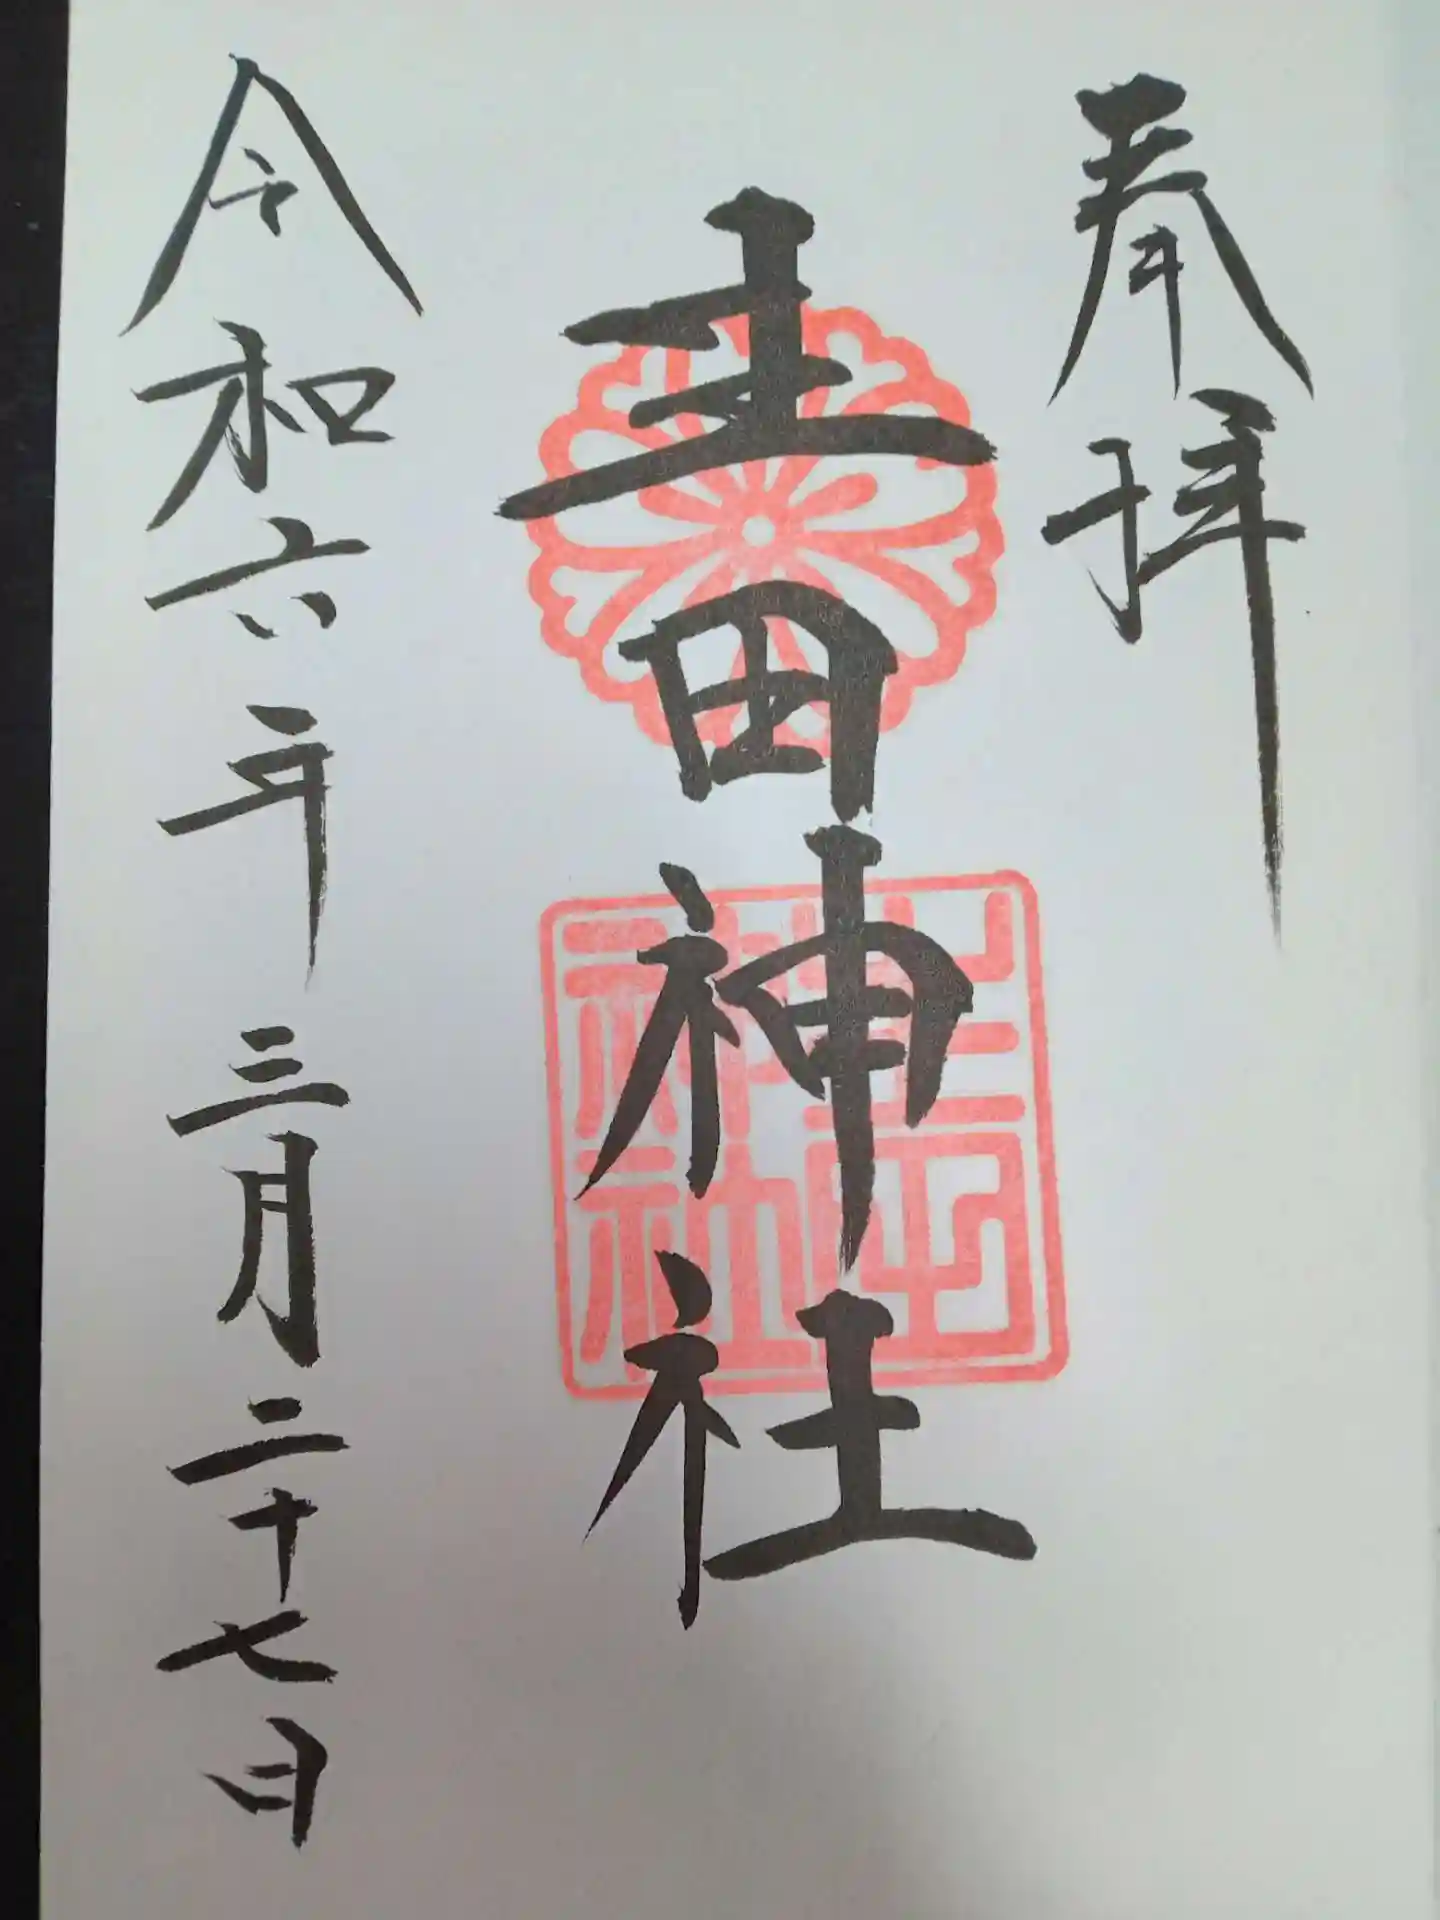 奉拝
生田神社
令和六年 三月二十七日
生田
神社